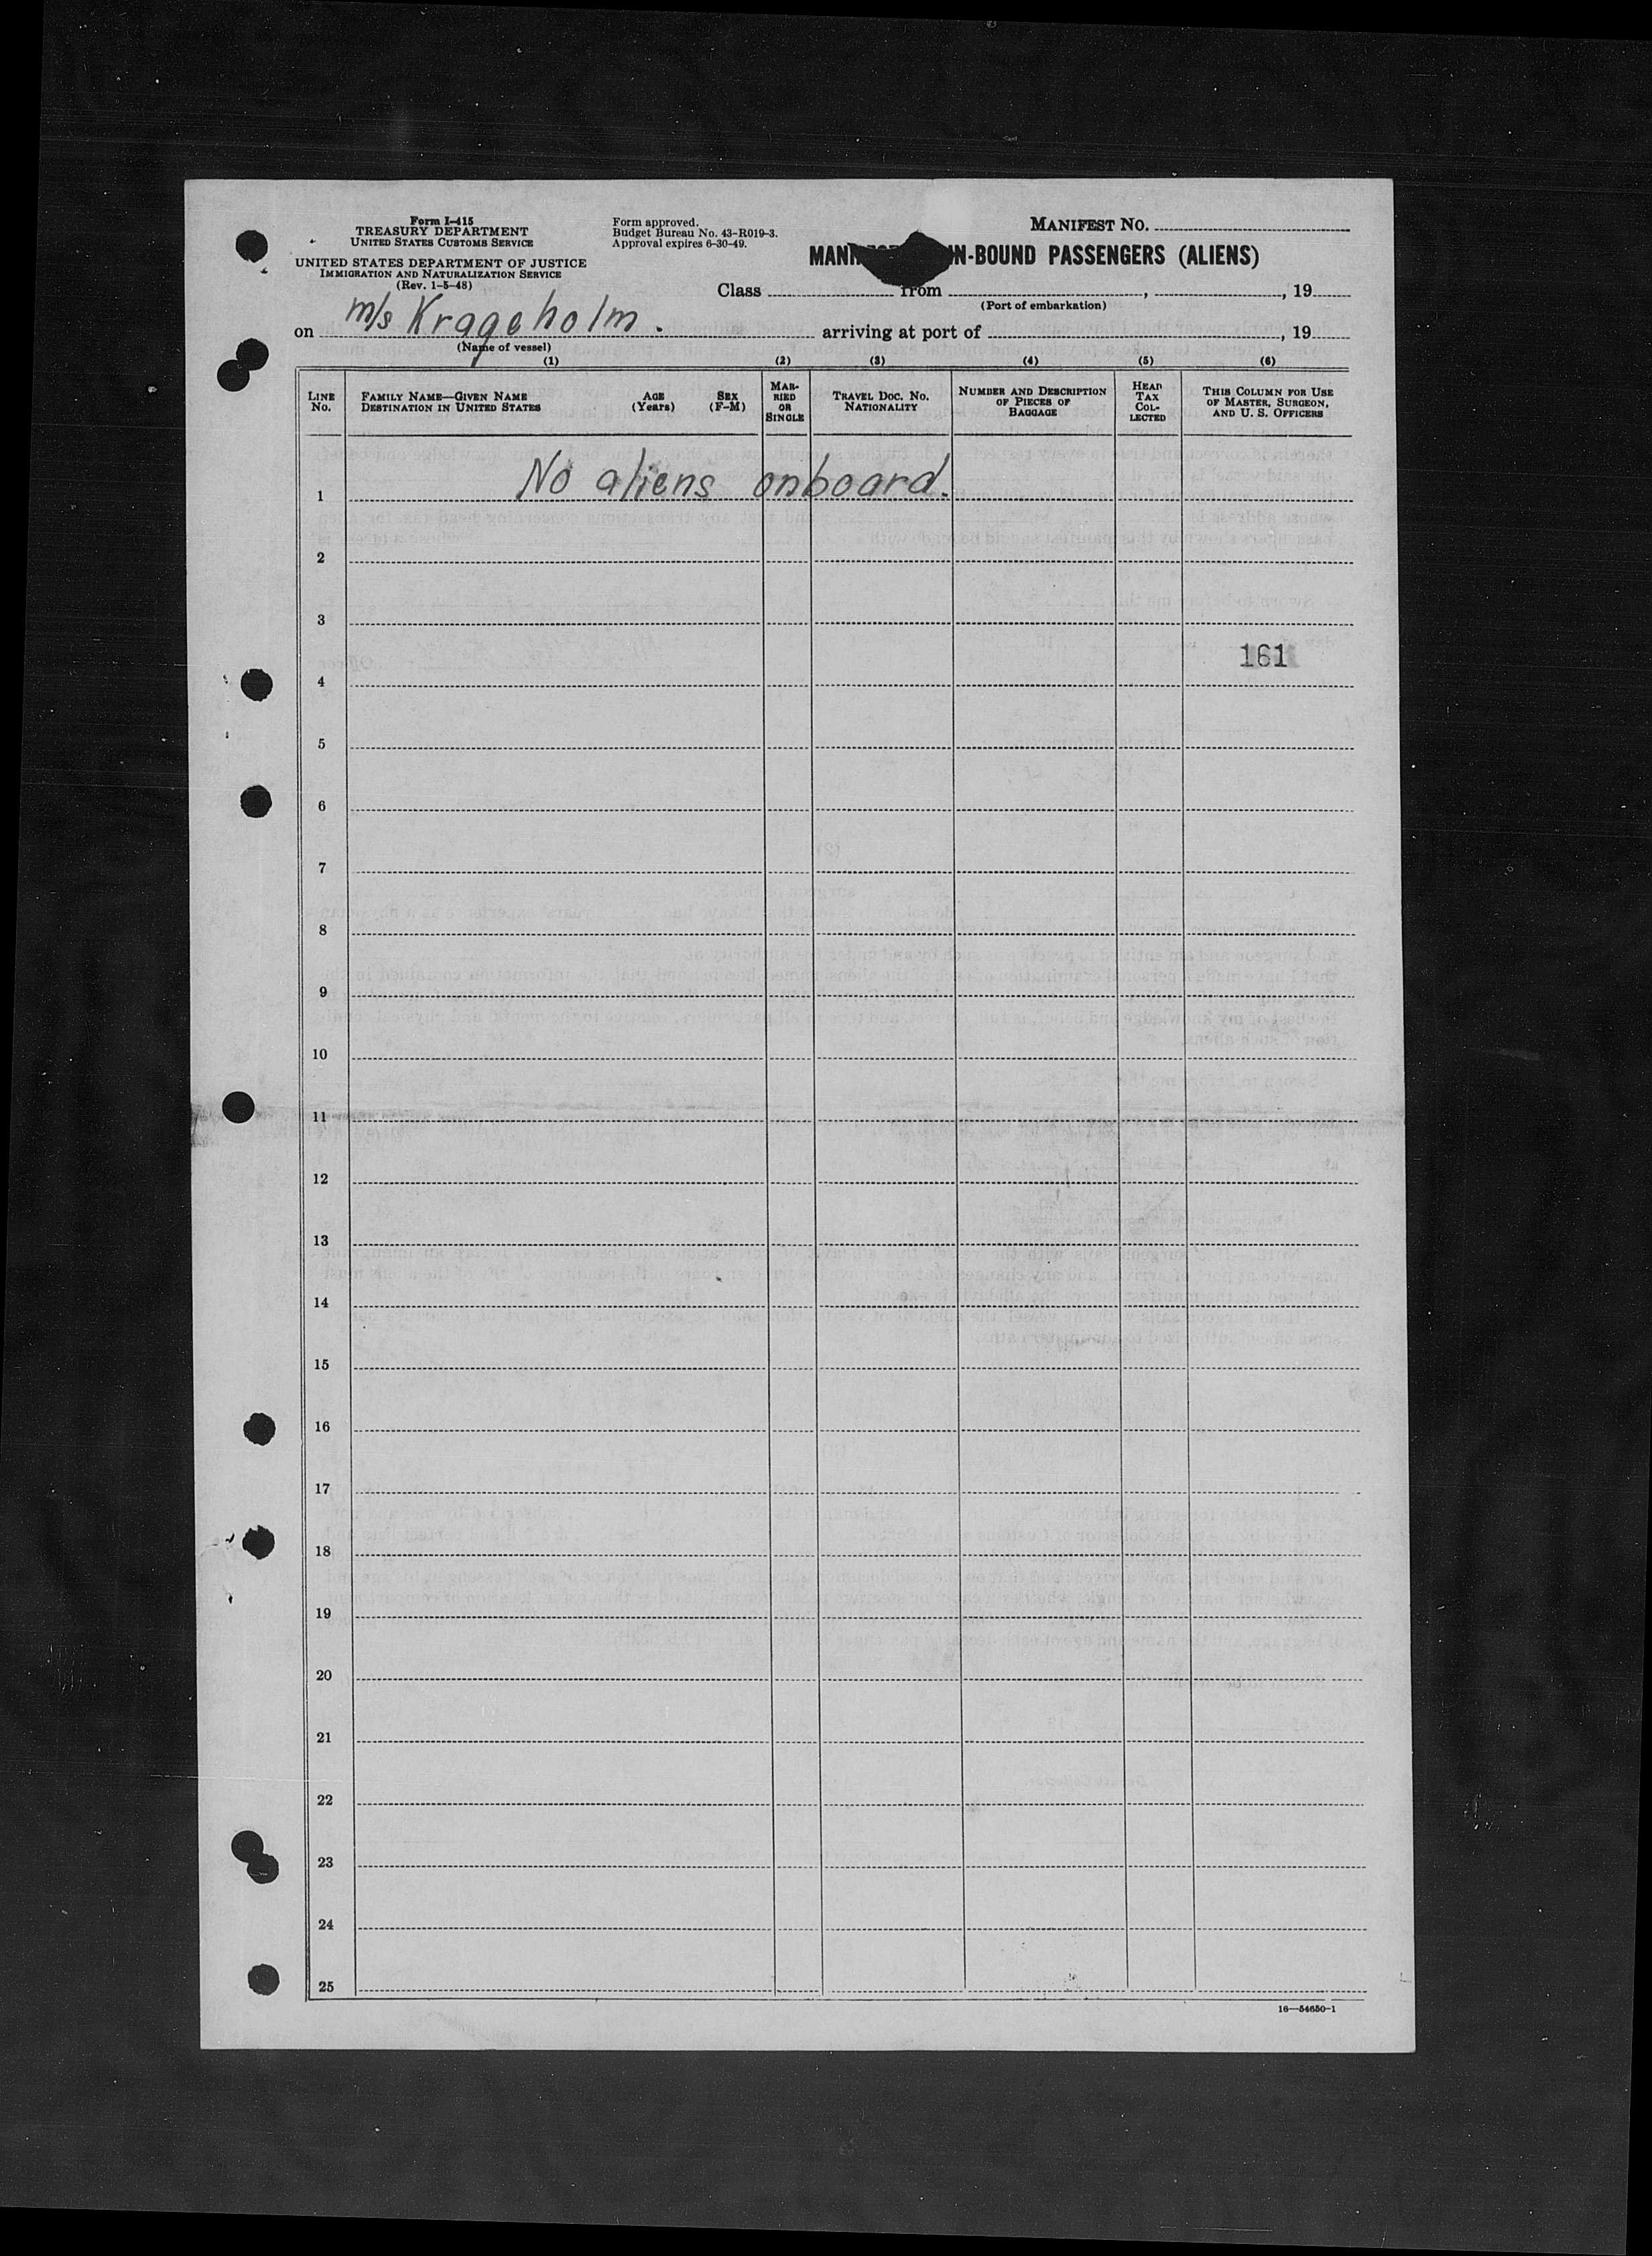 Form I-415
TREASURY DEPARTMENT
UNITED STATES CUSTOMS SERVICE
UNITED STATES DEPARTMENT OF JUSTICE
IMMIGRATION AND NATURALIZATION SERVICE
(Rev. 1-5-48)
Form approved.
Budget Bureau No. 43-R019-3.
Approval expires 6-30-49.
MANIFEST No.
IN-BOUND PASSENGERS (ALIENS)
Class from , , 19
(Port of embarkation)
on m/s Krageholm. arriving at port of , 19
(Name of vessel)
(1) (2) (3) (4) (5) (6)
LINE No.
FAMILY NAME—GIVEN NAME
DESTINATION IN UNITED STATES
AGE (Years)
SEX (F-M)
MARRIED OR SINGLE
TRAVEL DOC. NO.
NATIONALITY
NUMBER AND DESCRIPTION
OF PIECES OF
BAGGAGE
HEAD
TAX
COL-
LECTED
THIS COLUMN FOR USE
OF MASTER, SURGEON,
AND U. S. OFFICERS
1 No aliens onboard.
2
3
161
4
5
6
7
8
9
10
11
12
13
14
15
16
17
18
19
20
21
22
23
24
25
16—54650-1